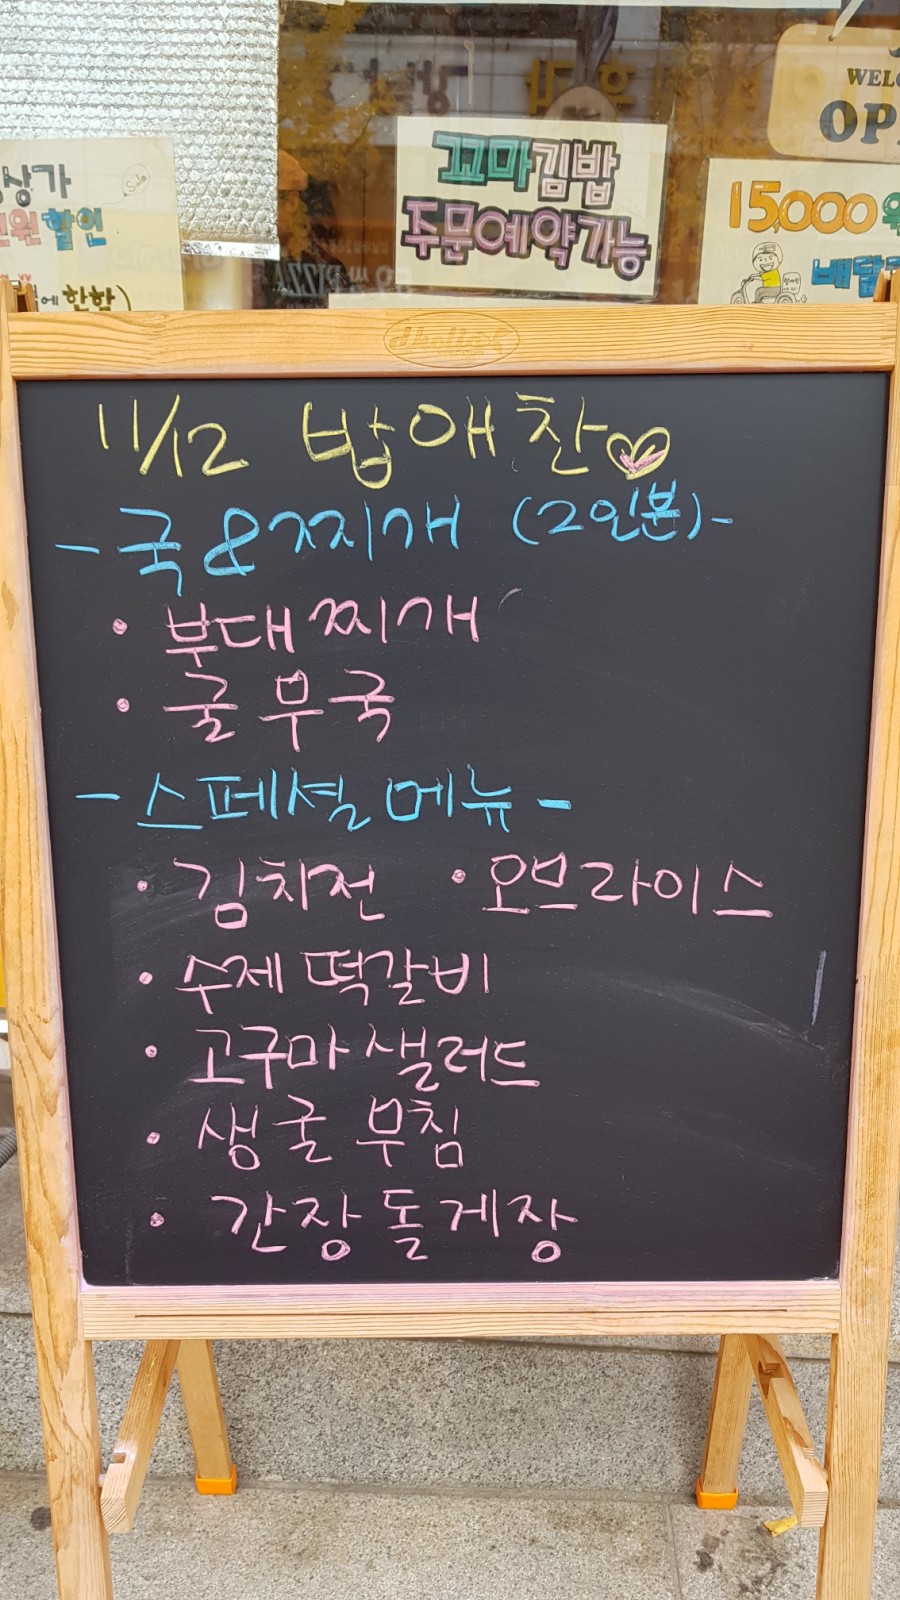 상가
원 할인
에 한함)
Sale
꼬마김밥
주문예약가능
OP
15,000
11/12 밥애찬
- 국&찌개 (2인분) -
• 부대찌개
• 굴 무국
- 스페셜 메뉴 -
• 김치전 • 오므라이스
• 수제 떡갈비
• 고구마 샐러드
• 생굴 부침
• 간장돌게장